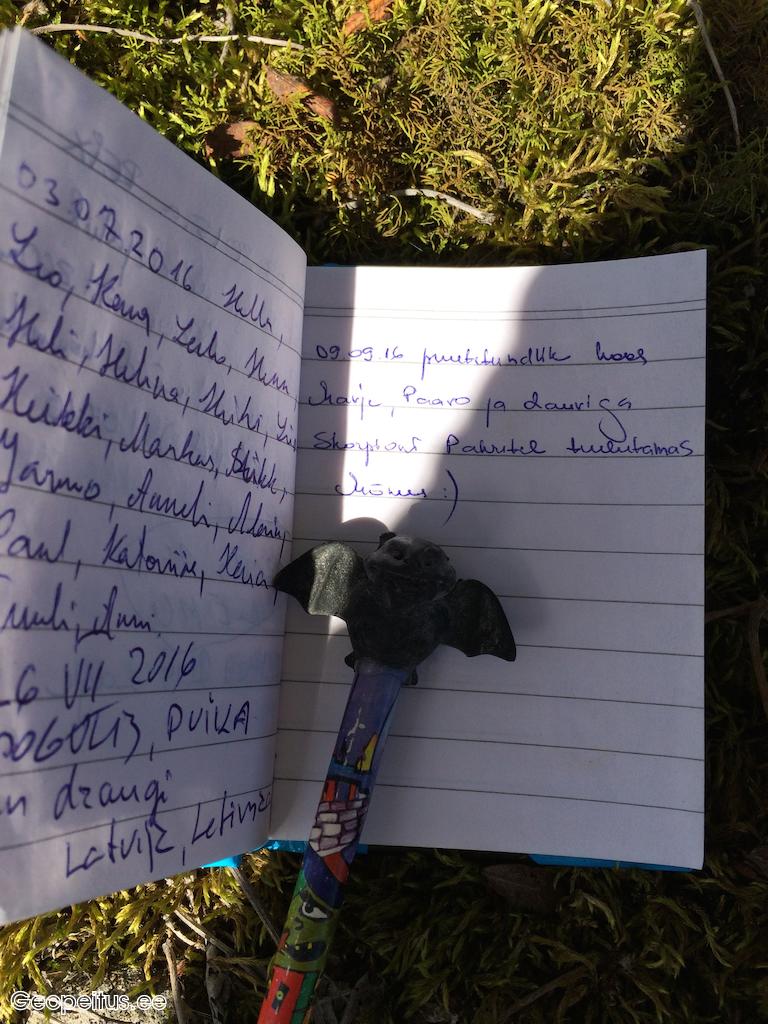 03.07.2016 Hella,
Leo, Kena, Leho, Henn,
Heli, Helina, Mihi,
Heikki, Markus,
Jarmo, Anneli,
Paul, Katariin,
Tuuli, Anni.
26 VII 2016
DVIKA
un draugi
Latvija,
09.09.16 puutetundlik koos
Marje, Paavo ja Lauriga
Skorpioni Pakritel tuulutamas
Mõnus :)
Geopeitus.ee